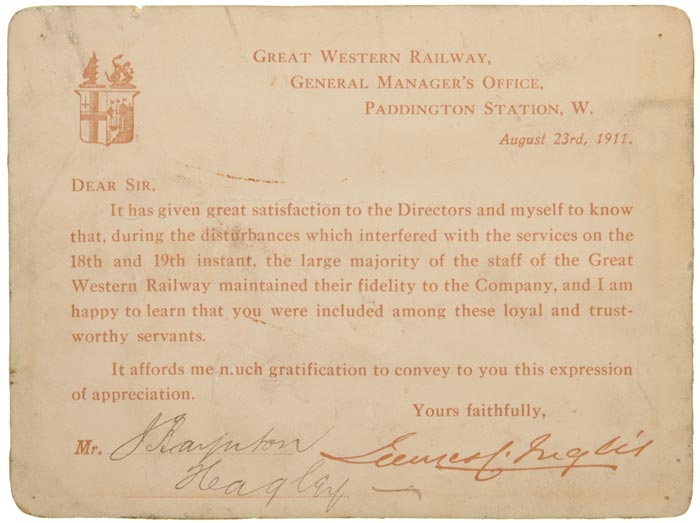 GREAT WESTERN RAILWAY,
GENERAL MANAGER'S OFFICE,
PADDINGTON STATION, W.
August 23rd, 1911.
DEAR SIR,
It has given great satisfaction to the Directors and myself to know
that, during the disturbances which interfered with the services on the
18th and 19th instant, the large majority of the staff of the Great
Western Railway maintained their fidelity to the Company, and I am
happy to learn that you were included among these loyal and trust-
worthy servants.
It affords me much gratification to convey to you this expression
of appreciation.
Yours faithfully,
Mr. J Baynton James C. Inglis
Hagley